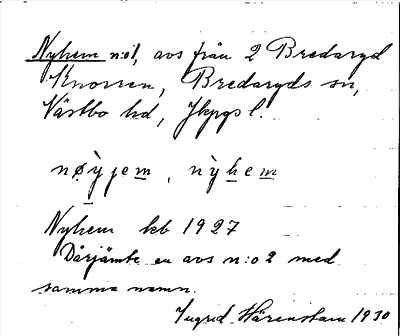 Nyhem n:o1, avs från 2 Bredaryd
Knorren, Bredaryds sn,
Västbo hd, Jkpgs l.
nøỳjem, nỳhem
Nyhem kb 1927
Därjämte en avs n:o 2 med
samma namn.
Ingrid Härenstam 1930